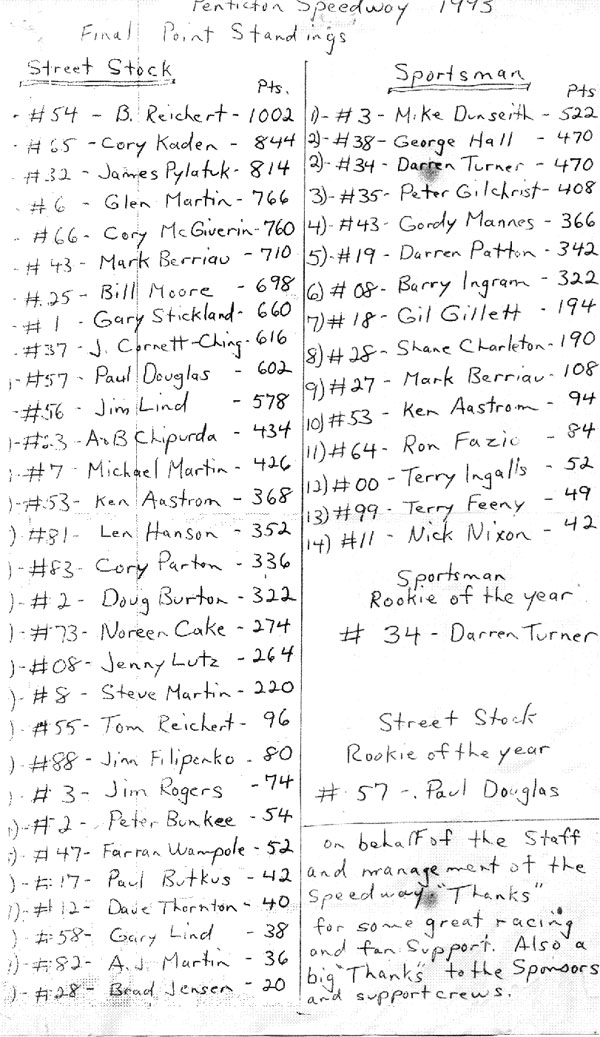 Penticton Speedway 1993
Final Point Standings
Street Stock
Pts.
- #54 - B. Reichert - 1002
- #65 - Cory Kaden - 844
- #32 - James Pylatuk - 814
- #6 - Glen Martin - 766
- #66 - Cory McGiverin - 760
- #43 - Mark Berriau - 710
- #25 - Bill Moore - 698
- #1 - Gary Stickland - 660
- #37 - J. Cornett-Ching - 616
)- #57 - Paul Douglas - 602
- #56 - Jim Lind - 578
)- #23 - A+B Chipurda - 434
)- #7 - Michael Martin - 426
)- #53 - Ken Aastrom - 368
)- #81 - Len Hanson - 352
)- #83 - Cory Parton - 336
)- #2 - Doug Burton - 322
)- #73 - Noreen Cake - 274
)- #08 - Jenny Lutz - 264
)- #8 - Steve Martin - 220
)- #55 - Tom Reichert - 96
)- #88 - Jim Filipenko - 80
)- #3 - Jim Rogers - 74
)- #2 - Peter Bunkee - 54
)- #47 - Farran Wampole - 52
)- #17 - Paul Butkus - 42
)- #12 - Dave Thornton - 40
)- #58 - Gary Lind - 38
)- #82 - A.J. Martin - 36
)- #28 - Brad Jensen - 20
Sportsman
Pts
1)- #3 - Mike Dunseith - 522
2)- #38 - George Hall - 470
2)- #34 - Darren Turner - 470
3)- #35 - Peter Gilchrist - 408
4)- #43 - Gordy Mannes - 366
5)- #19 - Darren Patton - 342
6)# 08 - Barry Ingram - 322
7)# 18 - Gil Gillett - 194
8)# 28 - Shane Charleton - 190
9)# 27 - Mark Berriau - 108
10)#53 - Ken Aastrom - 94
11)#64 - Ron Fazio - 84
12)# 00 - Terry Ingalls - 52
13)#99 - Terry Feeny - 49
14) #11 - Nick Nixon - 42
Sportsman
Rookie of the year
# 34 - Darren Turner
Street Stock
Rookie of the year
# 57 - Paul Douglas
on behalf of the Staff
and management of the
Speedway "Thanks"
for some great racing
and fan support. Also a
big "Thanks" to the Sponsors
and support crews.